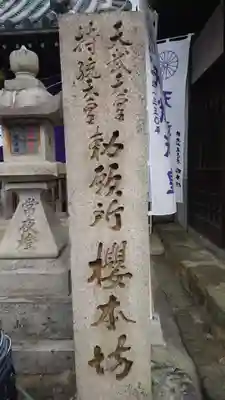 天武天皇
持統天皇
勅願所 櫻本坊
常夜燈